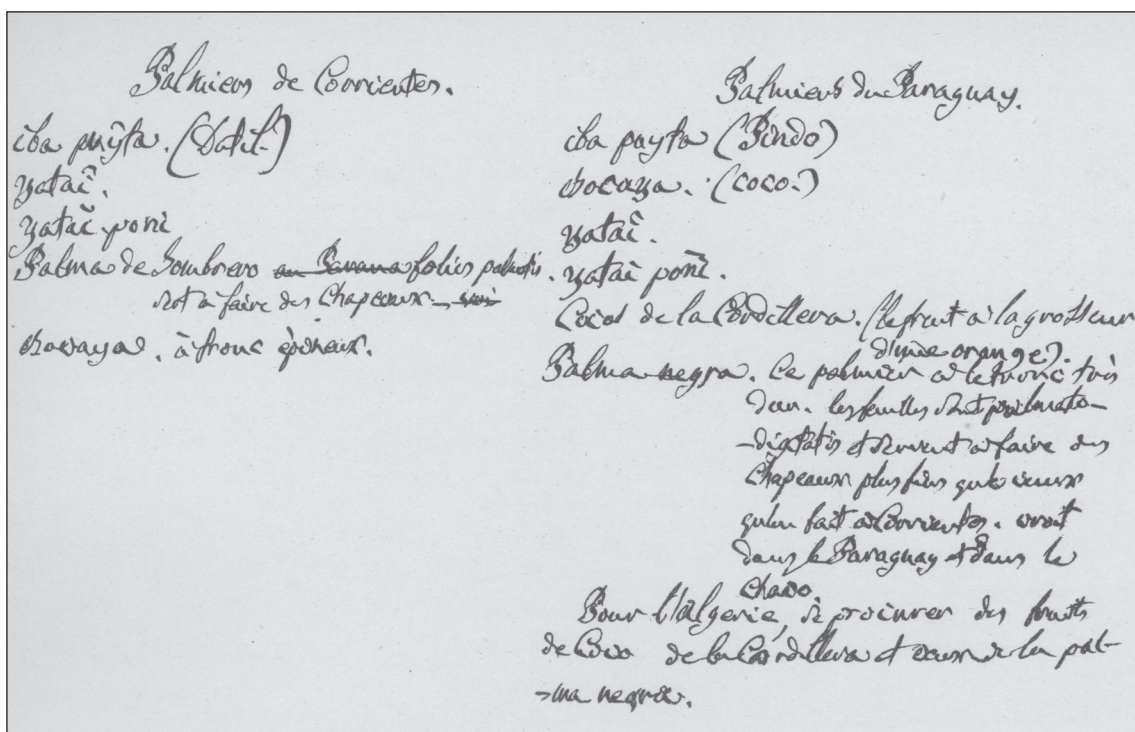 Palmiers de Corrientes.
iba puỹta. (Datil.)
yataĩ.
yataĩ poñi
Palma de Sombrero au Panama foliis palmatis.
sert à faire des chapeaux – qui
chocaya. à tronc épineux.
Palmiers du Paraguay.
iba payta (Pindo)
chocaya. (coco.)
yataĩ.
yataĩ poñi.
Cocos de la Cordillera. (le fruit a la grosseur
d'une orange).
Palma negra. Ce palmier a le tronc très
dur. les feuilles sont palmato-
-digitatis et servent à faire des
chapeaux plus fins que ceux
qu'on fait à Corrientes. croit
dans le Paraguay et dans le
Chaco.
Pour l'Algérie, se procurer des fruits
de Coco de la Cordillera et ceux de la pal-
-ma negra.